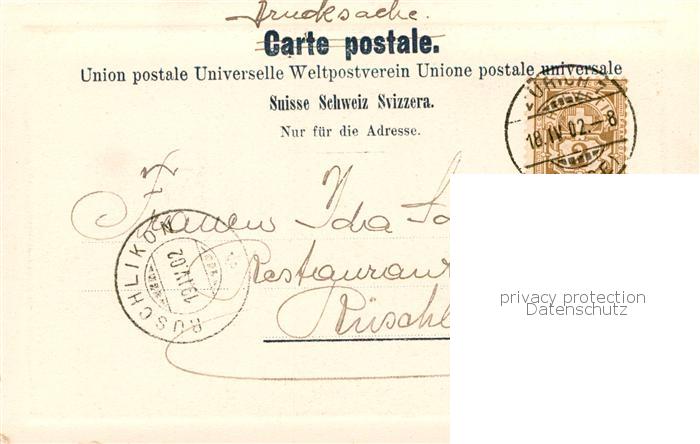 Drucksache.
Carte postale.
Union postale Universelle Weltpostverein Unione postale universale
Suisse Schweiz Svizzera.
Nur für die Adresse.
ZÜRICH
18.IV.02.–8
Ida
Restaurant
Rüschl
RÜSCHLIKON
19.IV.02
privacy protection
Datenschutz